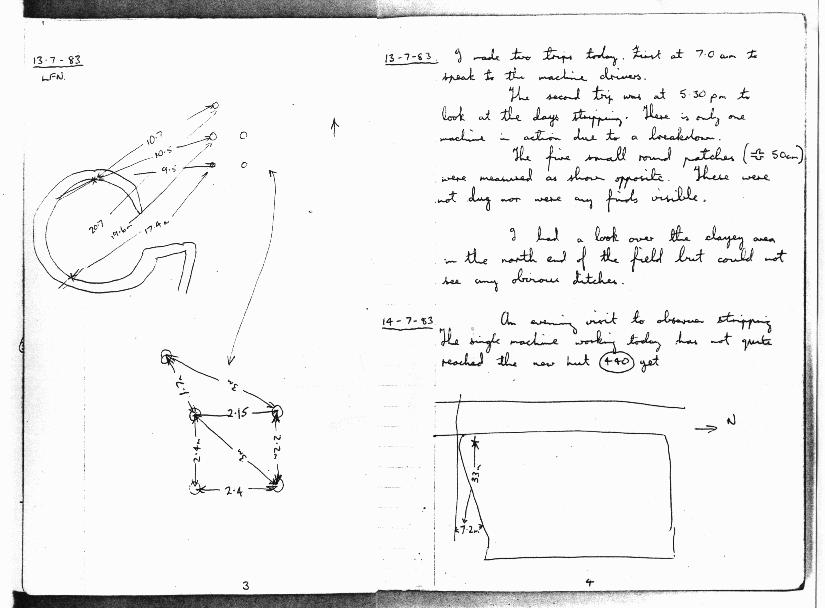 13-7-83
LFN.
10.7
10.5
9.5
20.7
19.6m
17.4m
1.7m
3m
2.15
2.4m
3m
2.2m
2.4
3
13-7-83 I made two trips today. First at 7.0 am to
speak to the machine drivers.
The second trip was at 5.30 pm to
look at the days stripping. There is only one
machine in action due to a breakdown.
The five small round patches (≏ 50cm)
were measured as shown opposite. These were
not dug nor were any finds visible.
I had a look over the clayey area
in the north end of the field but could not
see any obvious ditches.
14-7-83 An evening visit to observe stripping
The single machine working today has not quite
reached the new hut 440 yet
N
33m
7.2m
4